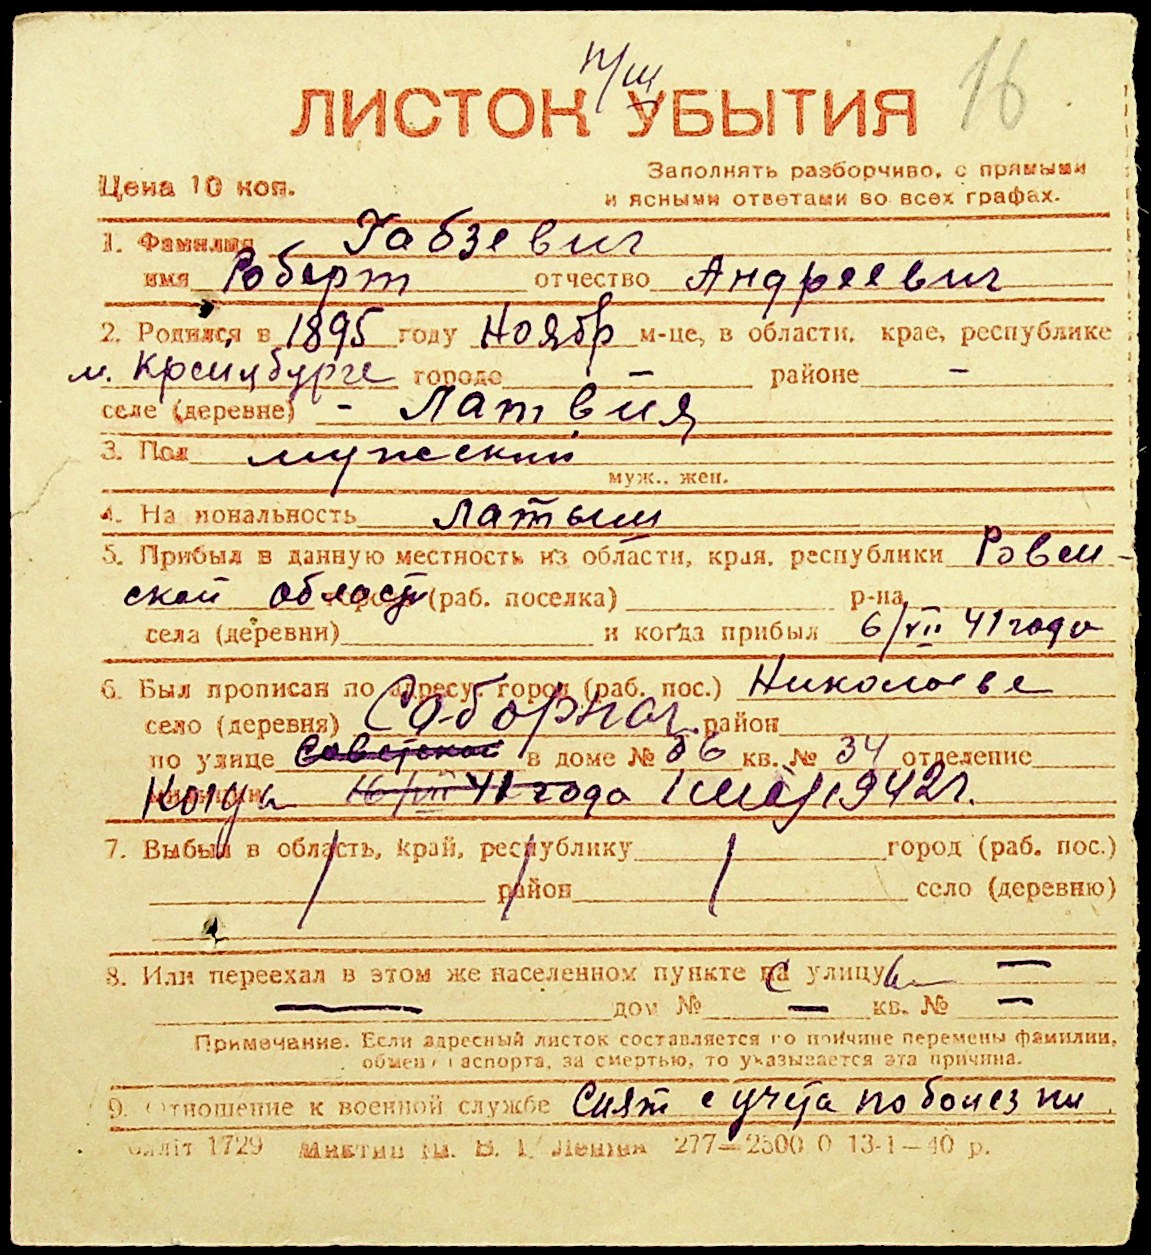 п/щ
16
ЛИСТОК УБЫТИЯ
Цена 10 коп.
Заполнять разборчиво, с прямыми
и ясными ответами во всех графах.
1. Фамилия Габзевич
имя Роберт отчество Андреевич
2. Родился в 1895 году Ноябр м-це, в области, крае, республике
м. Крейцбурге городе - районе -
селе (деревне) - Латвия
3. Пол мужский
муж., жен.
4. Национальность Латыш
5. Прибыл в данную местность из области, края, республики Ровен-
ской области (раб. поселка) р-на
села (деревни) и когда прибыл 6/VII 41 года
6. Был прописан по адресу: город (раб. пос.) Николаеве
село (деревня) Соборная район
по улице Советской в доме № 56 кв. № 34 отделение
Когда 16/VII 41 года 1942 г.
7. Выбыл в область, край, республику город (раб. пос.)
район село (деревню)
8. Или переехал в этом же населенном пункте на улицу —
— дом № — кв. № —
Примечание. Если адресный листок составляется по причине перемены фамилии,
обмена паспорта, за смертью, то указывается эта причина.
9. Отношение к военной службе Снят с учёта по болезни
1729 им. В. І. Леніна 277—2500 0 13-1—40 р.